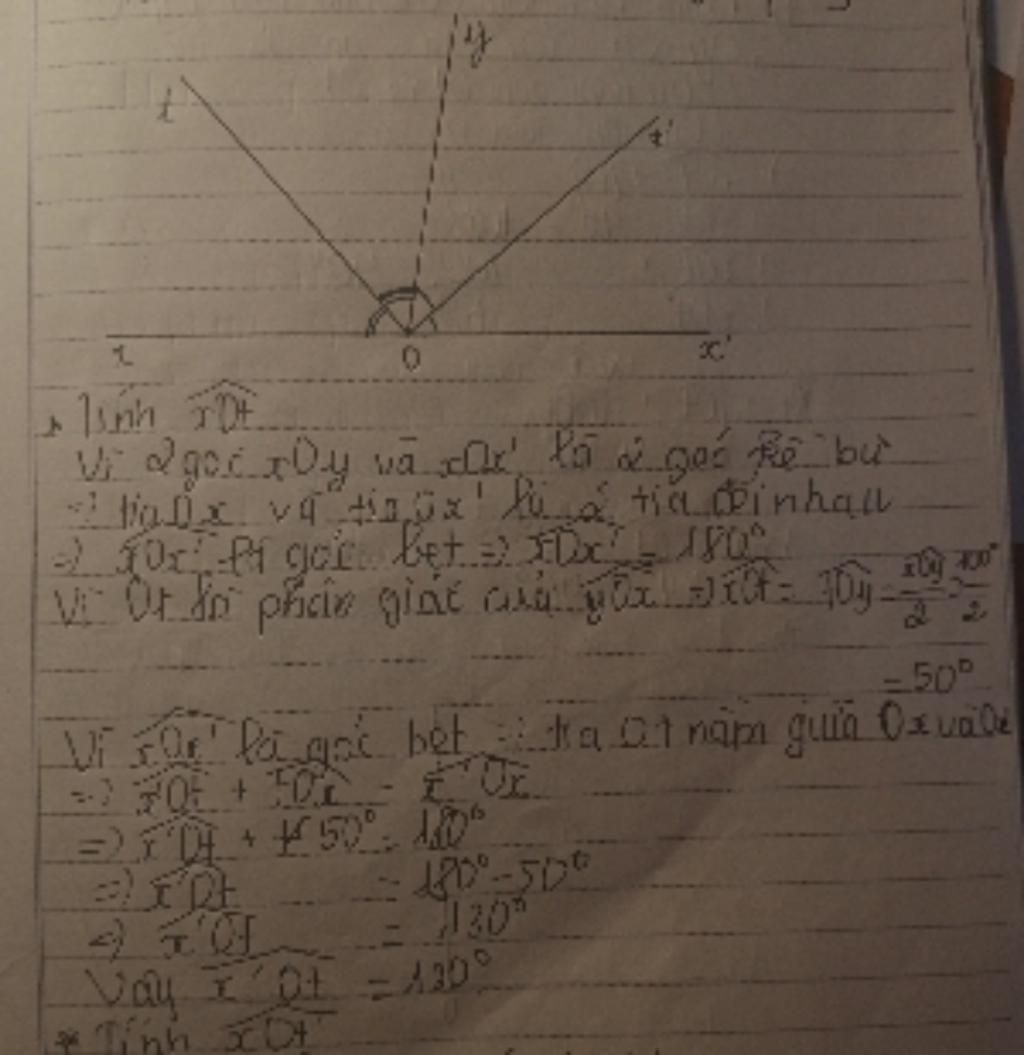 y
t
t'
x
O
x'
* Tính xOt
Vì 2 góc xOy và xOx' là 2 góc kề bù
=> tia Ox và tia Ox' là 2 tia đối nhau
=> xOx' là góc bẹt => xOx' = 180°
Vì Ot là phân giác của yOx => xOt = tOy = xOy/2 = 100°/2
= 50°
Vì xOx' là góc bẹt => tia Ot nằm giữa Ox và Ox'
=> x'Ot + tOx = x'Ox
=> x'Ot + 50° = 180°
=> x'Ot = 180° - 50°
=> x'Ot = 130°
Vậy x'Ot = 130°
* Tính xOt'